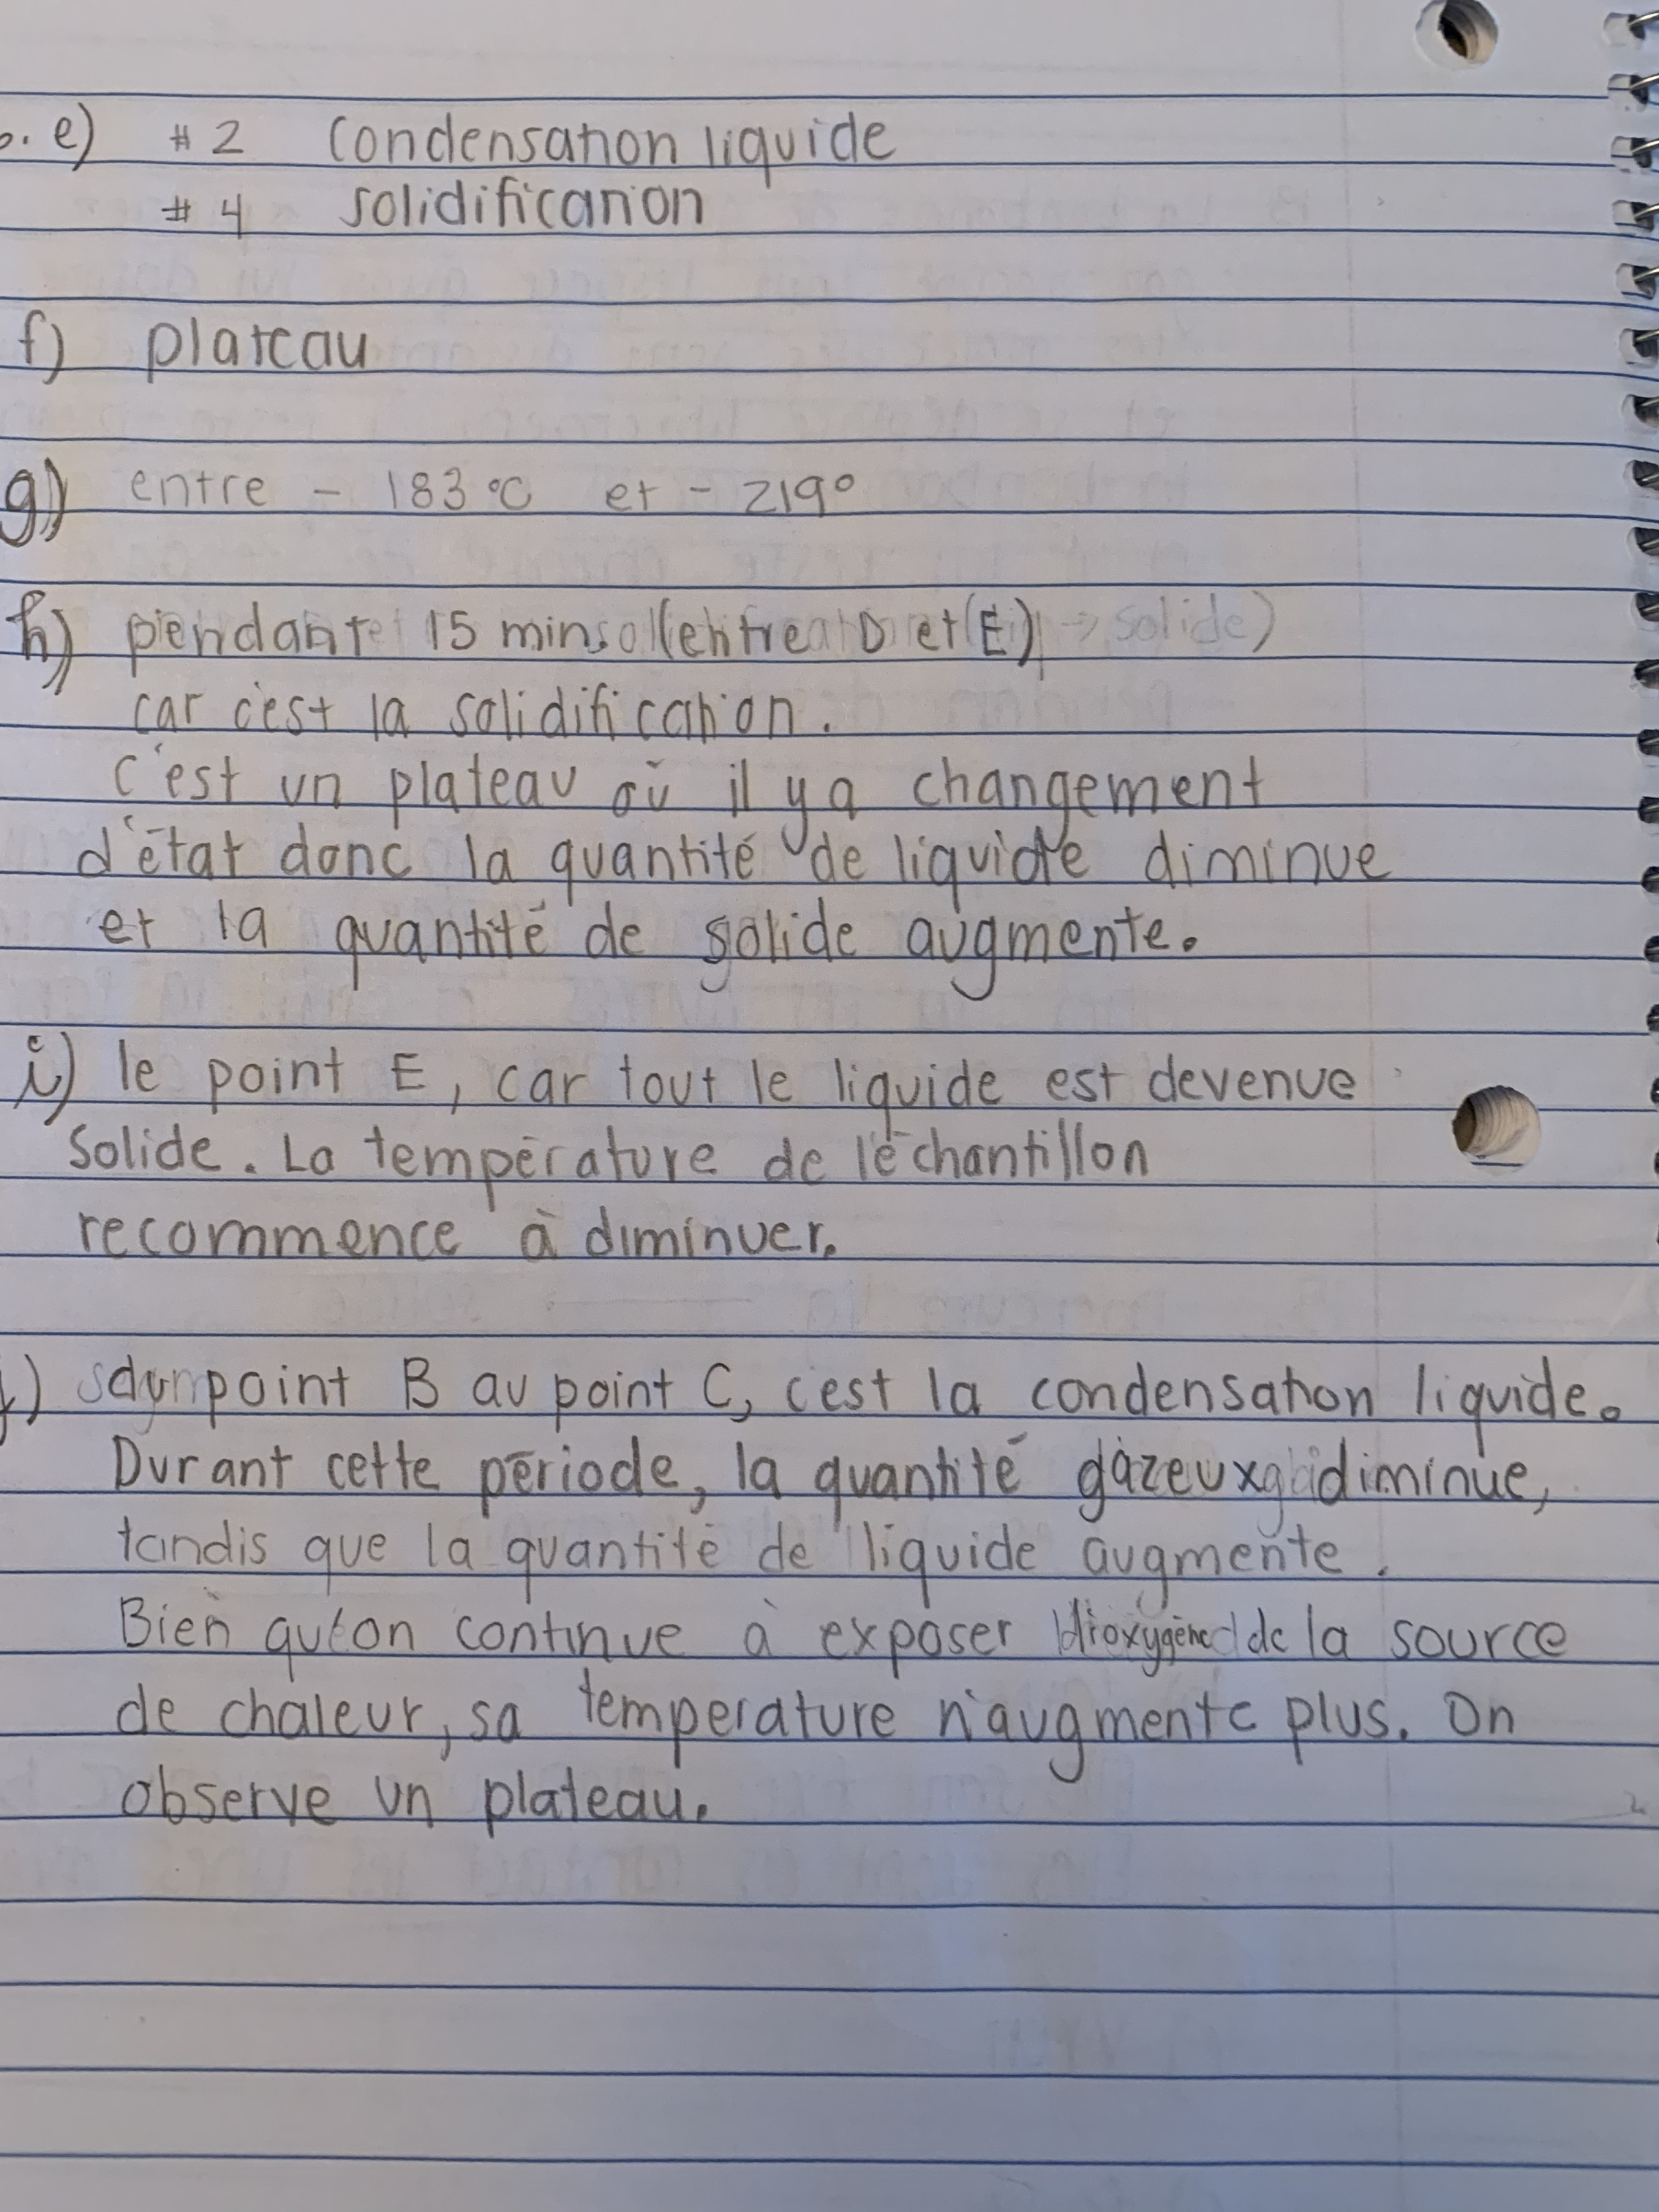 e) #2 Condensation liquide
#4 solidification
f) plateau
g) entre - 183°C et - 219°
h) pendant 15 min (entre D et E) → solide)
car c'est la solidification.
C'est un plateau où il y a changement
d'état donc la quantité de liquide diminue
et la quantité de solide augmente.
i) le point E, car tout le liquide est devenue
solide. La température de l'échantillon
recommence à diminuer.
j) du point B au point C, c'est la condensation liquide.
Durant cette période, la quantité gazeux diminue,
tandis que la quantité de liquide augmente.
Bien qu'on continue à exposer dioxygène de la source
de chaleur, sa temperature n'augmente plus. On
observe un plateau.